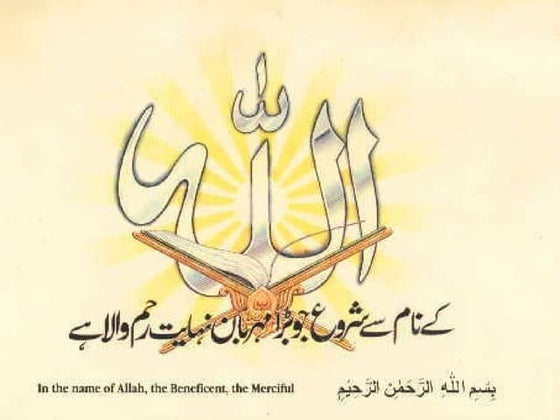 الله
کے نام سے شروع جو بڑا مہربان نہایت رحم والا ہے
In the name of Allah, the Beneficent, the Merciful
بِسْمِ اللّٰهِ الرَّحْمٰنِ الرَّحِيْمِ